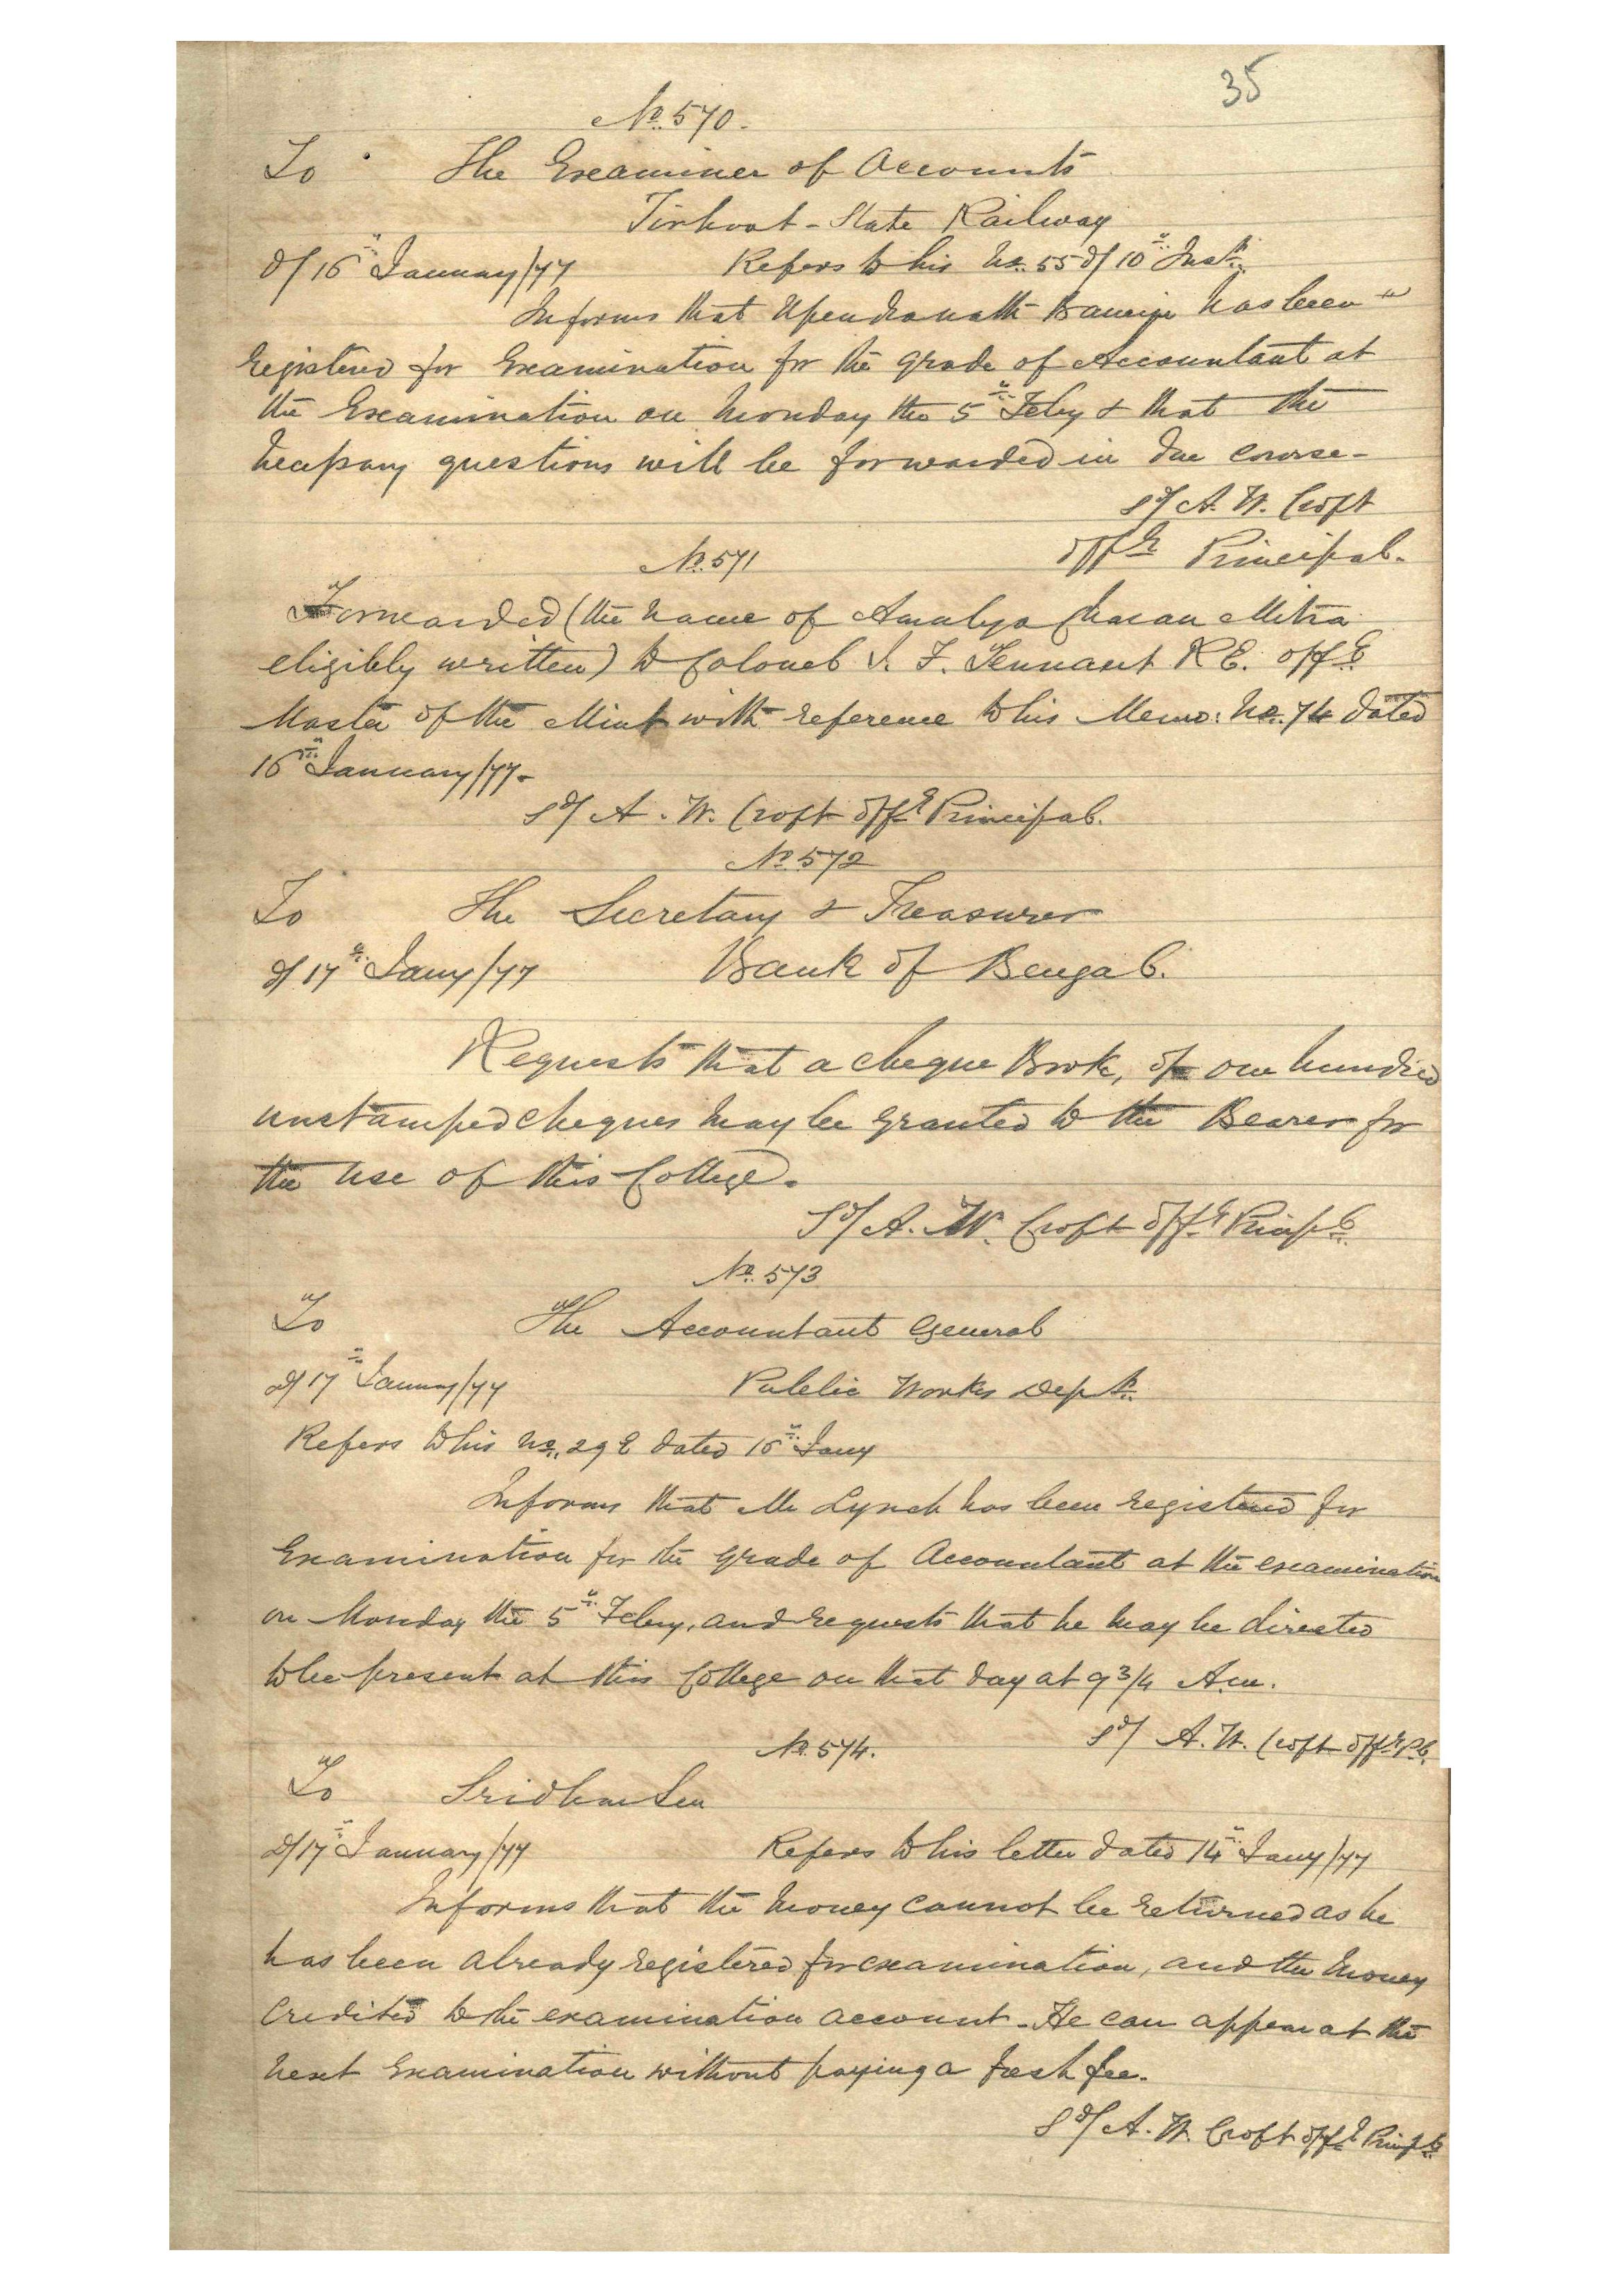 35
No. 570.
To The Examiner of Accounts
Tirhoot-State Railway
d/ 16th January/77 Refers to his No. 55 d/ 10th Inst.
Informs that Upendranath Banerji has been
registered for Examination for the grade of Accountant at
the Examination on Monday the 5th Feby & that the
necessary questions will be forwarded in due course-
Sd/ A. W. Croft
Offg Principal.
No. 571
Forwarded (the name of Amulya Charan Mitra
eligibly written) to Colonel J. F. Tennant R.E. Offg
Master of the Mint with reference to his Memo: No. 74 dated
16th January/77-
Sd/ A. W. Croft Offg Principal.
No. 572
To The Secretary & Treasurer
d/ 17th Jany/77 Bank of Bengal.
Requests that a cheque Book, of one hundred
unstamped cheques may be granted to the Bearer for
the use of this College.
Sd/ A. W. Croft Offg Prinpl.
No. 573
To The Accountant General
d/ 17th January/77 Public Works Dept.
Refers to his No. 29 E dated 15th Jany
Informs that Mr Lynch has been registered for
Examination for the grade of Accountant at the examination
on Monday the 5th Feby, and requests that he may be directed
to be present at this College on that day at 9 3/4 A.m.
Sd/ A. W. Croft Offg Pl.
No. 574.
To Sridhar Sen
d/ 17th January/77 Refers to his letter dated 14th Jany/77
Informs that the money cannot be returned as he
has been already registered for examination, and the money
credited to the examination account- He can appear at the
next Examination without paying a fresh fee.
Sd/ A. W. Croft Offg Prinpl.